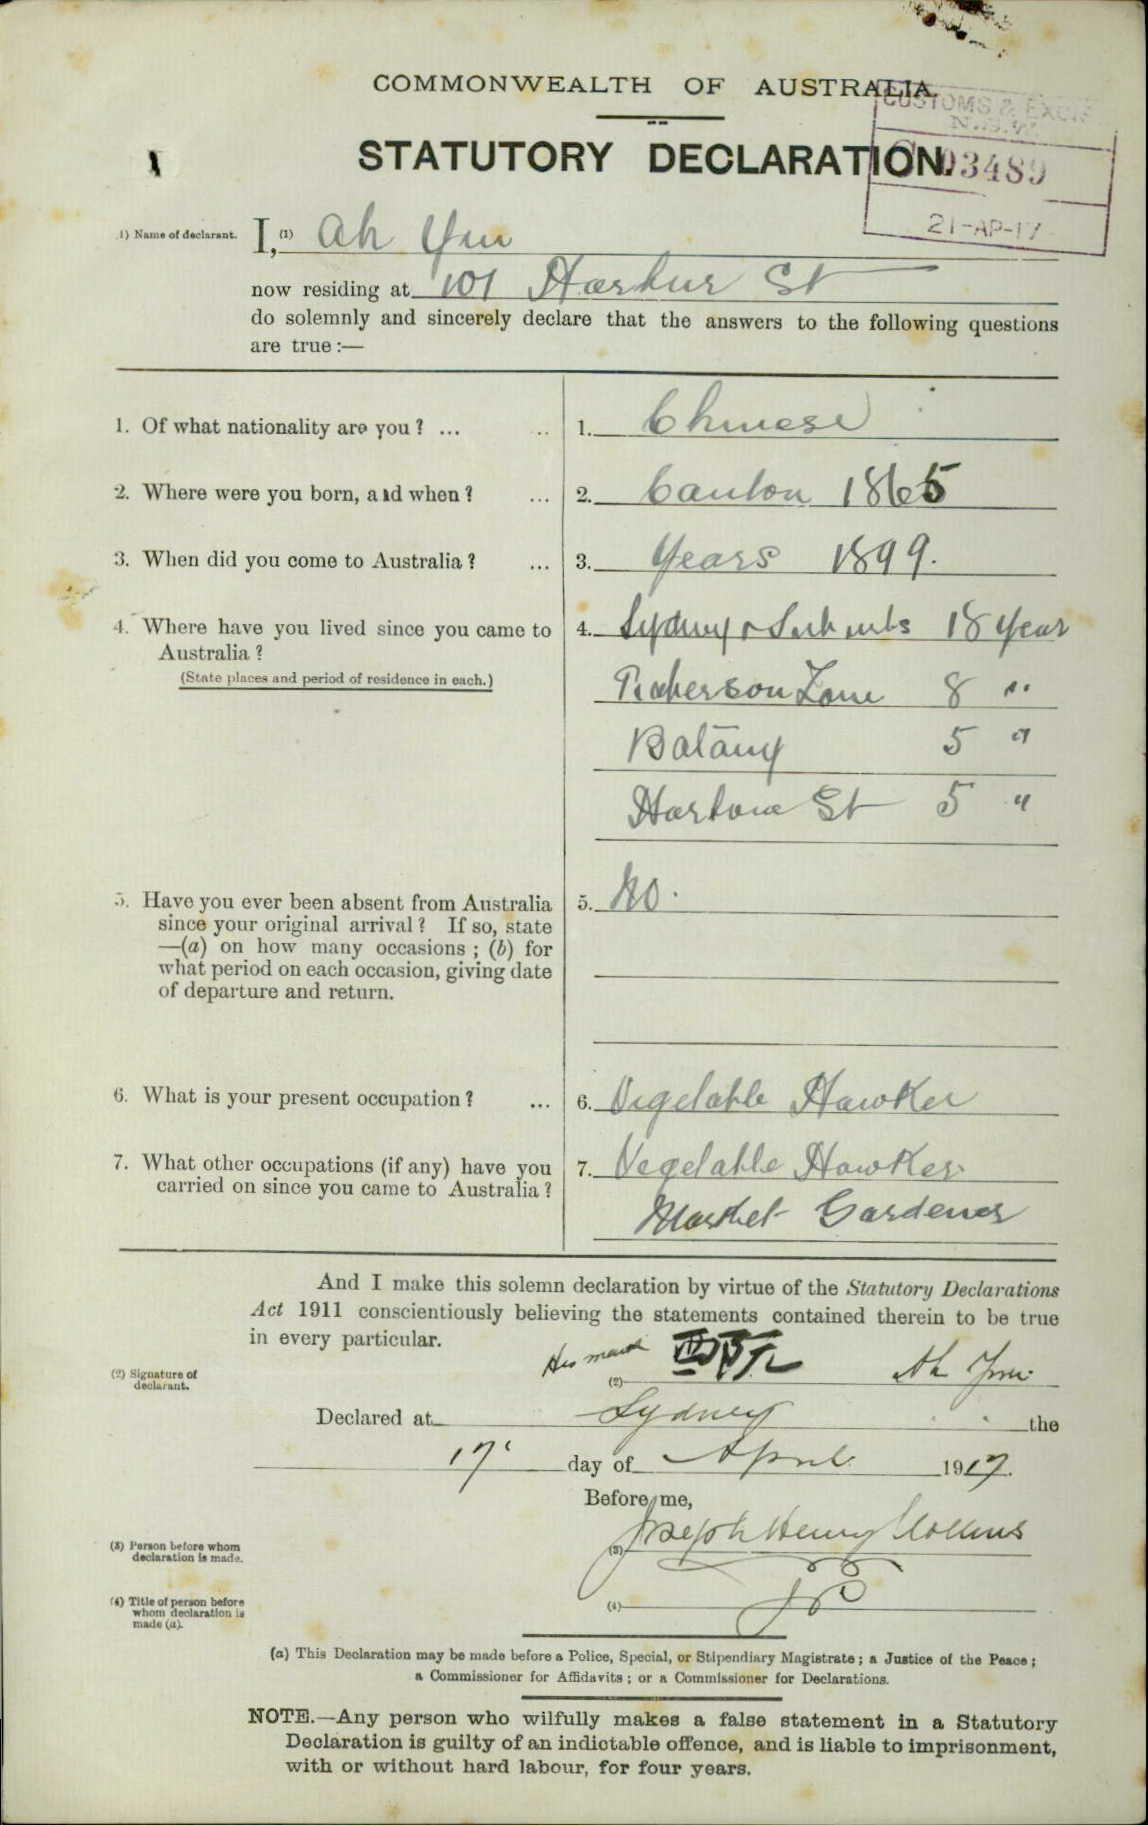 COMMONWEALTH OF AUSTRALIA.
CUSTOMS & EXCISE
N.S.W.
STATUTORY DECLARATION.
C 03489
21-AP-17
(1) Name of declarant. I,(1) Ah Yin
now residing at 101 Harbur St
do solemnly and sincerely declare that the answers to the following questions
are true:—
1. Of what nationality are you? ... ... 1. Chinese
2. Where were you born, and when? ... 2. Canton 1865
3. When did you come to Australia? ... 3. Years 1899.
4. Where have you lived since you came to 4. Sydney & Suburbs 18 Year
Australia?
(State places and period of residence in each.)
Lane 8 "
Batany 5 "
St 5 "
5. Have you ever been absent from Australia 5. No.
since your original arrival? If so, state
—(a) on how many occasions; (b) for
what period on each occasion, giving date
of departure and return.
6. What is your present occupation? ... 6. Vegetable Hawker
7. What other occupations (if any) have you 7. Vegetable Hawker
carried on since you came to Australia?
Market Gardener
And I make this solemn declaration by virtue of the Statutory Declarations
Act 1911 conscientiously believing the statements contained therein to be true
in every particular.
(2) Signature of
declarant.
His mark (2) Ah Yin
Declared at Sydney the
17 day of April 1917.
Before me,
(3) Person before whom
declaration is made.
(3) Joseph Henry Collins
(4) Title of person before
whom declaration is
made (a).
(4) JP
(a) This Declaration may be made before a Police, Special, or Stipendiary Magistrate; a Justice of the Peace;
a Commissioner for Affidavits; or a Commissioner for Declarations.
NOTE.—Any person who wilfully makes a false statement in a Statutory
Declaration is guilty of an indictable offence, and is liable to imprisonment,
with or without hard labour, for four years.